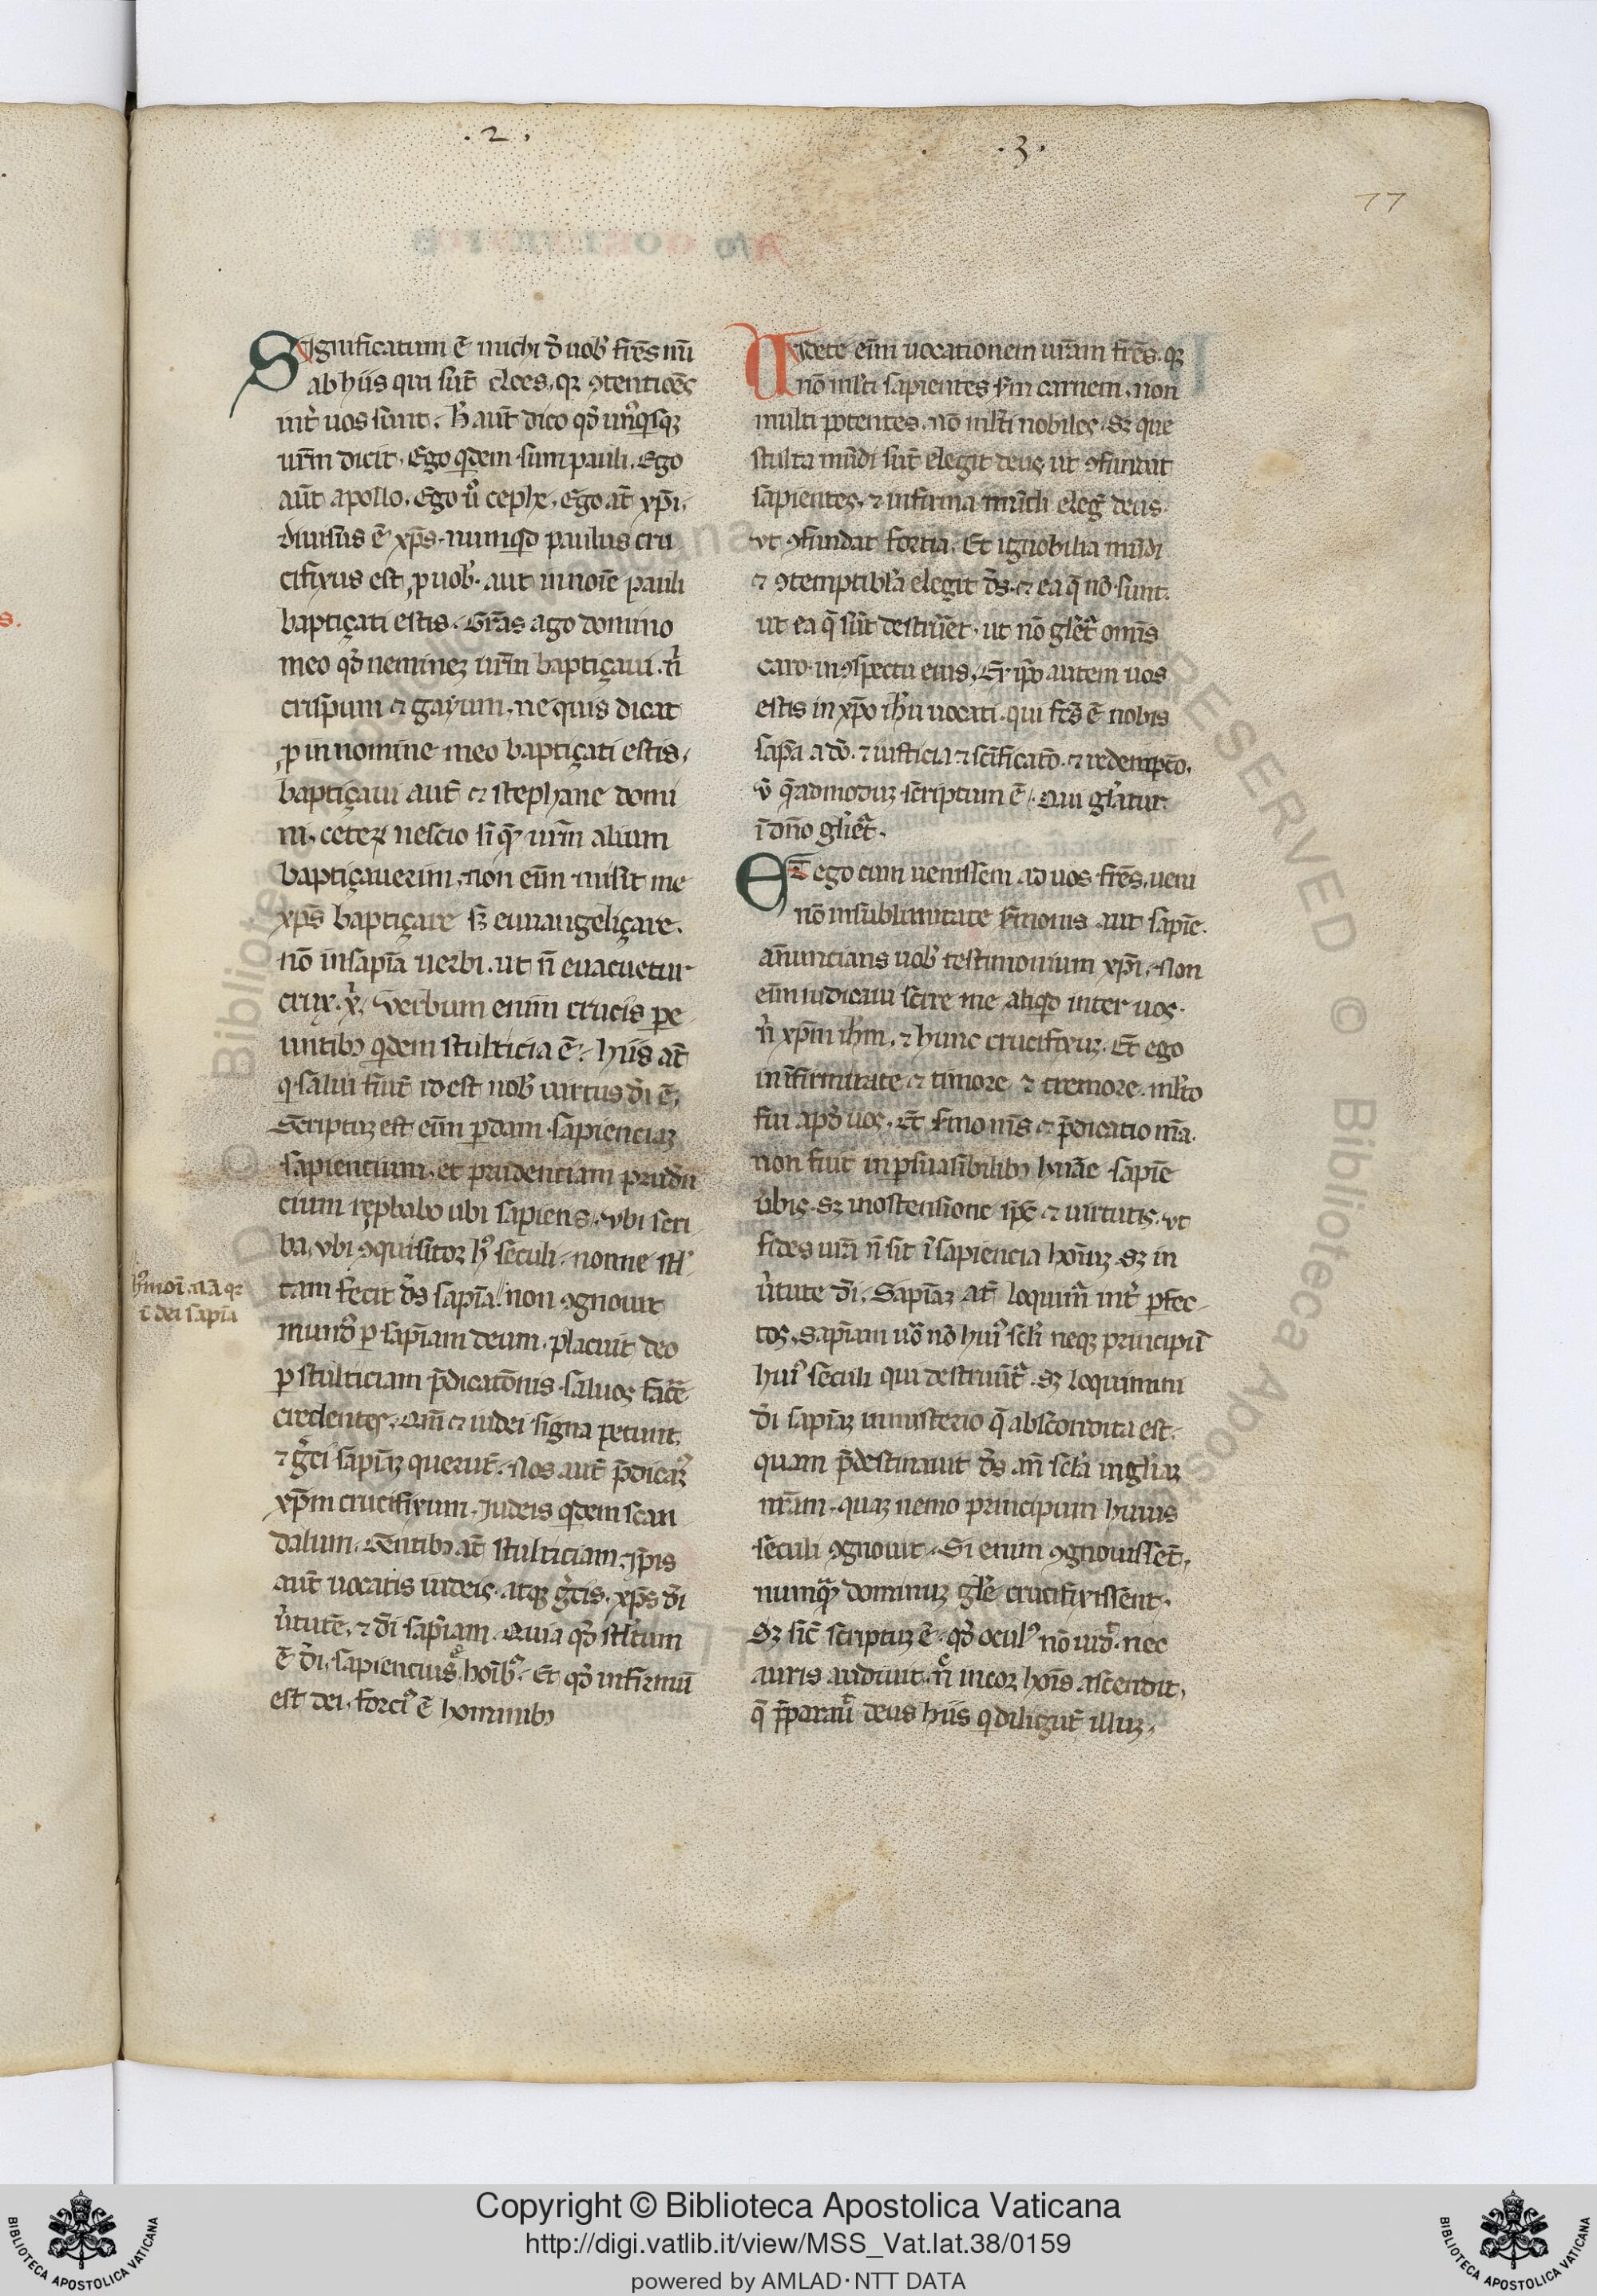 .2.
.3.
77
Significatum ē michi d̄ uob̕ fr̄es mī
ab hiis qui sūt cloes. qꝫ ꝯtentiōes
int̕ uos sunt. h̕ aūt dico qđ unꝰqisqꝫ
ur̄m dicit. Ego qdem sum pauli. Ego
aūt apollo. Ego u̕o cephe. Ego at̄ xp̄i.
diuisus ē xp̄s. numqd paulus cru
cifixus est ꝓ uob̕. aut in noīe pauli
baptiçati estis. Grās ago domino
meo qđ nemineꝫ ur̄m baptiçaui. n̕
crispum ⁊ gayum. ne quis dicat
ꝙ in nomine meo baptiçati estis.
baptiçaui aut̄ ⁊ stephane domū
m. ceteꝝ nescio si quē ur̄m alium
baptiçauerim. non eīm misit me
xp̄s baptiçare sꝫ euuangeliçare.
nō in sapīa uerbi. ut n̄ euacuetur
crux. x̕. Verbum enīm crucis pe
untibꝫ qdem stulticia ē. hiis at̄
q salui fiūt id est nob̕ uirtus dī ē.
Scriptuꝫ est eīm perdam sapienciaꝫ
sapiencium. et prudenciam prudn̄
cium reprobabo ubi sapiens. vbi scri
ba. vbi ꝯquisitor hꝰ seculi. nonne stl̕
tam fecit d̄s sapīa. non ꝯgnouit
mundꝰ ꝑ sapīam deum. placuit deo
ꝑ stulticiam p̄dicatōnis saluos facē
credentes. Qm̄ ⁊ iudei signa petunt.
⁊ gr̕ci sapīaꝫ querūt. Nos aut̄ p̄dicaꝫꝰ
xp̄m crucifixum. Iudeis qdem scan
dalum. Gentibꝫ at̄ stulticiam. ip̄is
aut̄ uocatis iudeis. atqꝫ gr̕cis. xp̄s dī
u̕tutē. ⁊ dī sapīam. Quia qđ stl̕tum
ē dī. sapiencius ē hoībꝰ. Et qđ infirmū
est dei. forciꝰ ē hominibꝫ
t̄ dei sapīa
Videte eīm uocationem ur̄am fr̄es. qꝫ
nō ml̕ti sapientes sm̄ carnem. non
multi potentes. nō ml̕ti nobiles. sꝫ que
stulta mūdi sūt elegit deus ut ꝯfundat
sapientes. ⁊ infirma mūdi eleg̕ deus.
vt ꝯfundat fortia. Et ignobilia mūdi
⁊ ꝯtemptibl̕ia elegit d̄s. ⁊ ea q̄ nō sunt.
ut ea q̄ sūt destrūet. ut nō gl̕iet̕ omīs
caro in ꝯspectu eius. Ex ip̄o autem uos
estis in xp̄o ih̄u uocati. qui fcs̄ ē nobis
sapīa a dō. ⁊ iusticia ⁊ scīficatō. ⁊ redemptō.
v̄ q̄admoduꝫ scriptum ē. Qui gl̕iatur
ī dn̄o gl̕iet̕.
Et ego cum uenissem ad uos fr̄es. ueni
nō in sublimitate s̄monis aut sapīe.
an̄untians uob̕ testimonium xp̄i. Non
eīm iudicaui scire me aliqd inter uos.
n̕ xp̄m ih̄m. ⁊ hunc crucifixuꝫ. Et ego
in īfirmitate ⁊ timore ⁊ tremore ml̕to
fui apđ uos. Et s̄mo m̄s ⁊ p̄dicatio m̄a.
non fuit in psuasibilibꝫ huāe sapīe
u̕bis. sꝫ in ostensione sp̄c ⁊ uirtutis. vt
fides ur̄a n̄ sit ī sapiencia hoīuꝫ. sꝫ in
u̕tute dī. Sapīaꝫ at̄ loquim̕ int̕ pfec
tos. Sapīam uō nō huiꝰ scl̕i neqꝫ principū
huiꝰ seculi qui destruūt̕. sꝫ loquimur
dī sapīaꝫ in misterio q̄ abscondita est.
quam p̄destinauit d̄s an̄ scl̕a in gl̕iaꝫ
nr̄am. quaꝫ nemo principum huius
seculi ꝯgnouit. Si enim ꝯgnouissēt.
numquā dominuꝫ gl̕ie crucifixissent.
Sꝫ sic̄ scriptuꝫ ē. qđ oculꝰ nō uid̕. nec
auris audiuit. n̄ in cor hoīs ascendit.
q̄ p̄parau̕ deus hiis q diligūt illuꝫ.
Copyright © Biblioteca Apostolica Vaticana
http://digi.vatlib.it/view/MSS_Vat.lat.38/0159
powered by AMLAD · NTT DATA
BIBLIOTECA APOSTOLICA VATICANA
BIBLIOTECA APOSTOLICA VATICANA